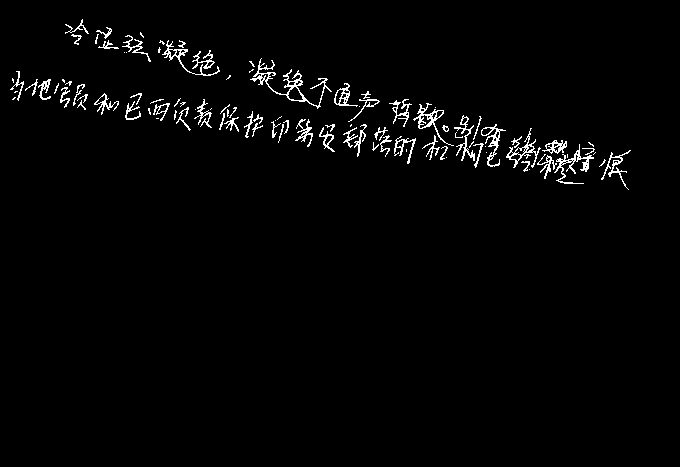 冷涩弦凝绝，凝绝不通声暂歇。别有愁暗恨
当地官员和巴西负责保护印第安部落的机构也